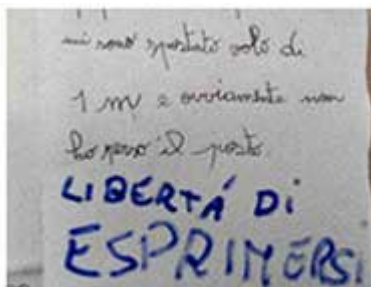 mi sono spostato solo di
1 m e ovviamente non
ho perso il posto.
LIBERTÁ Di
ESPRIMERSI